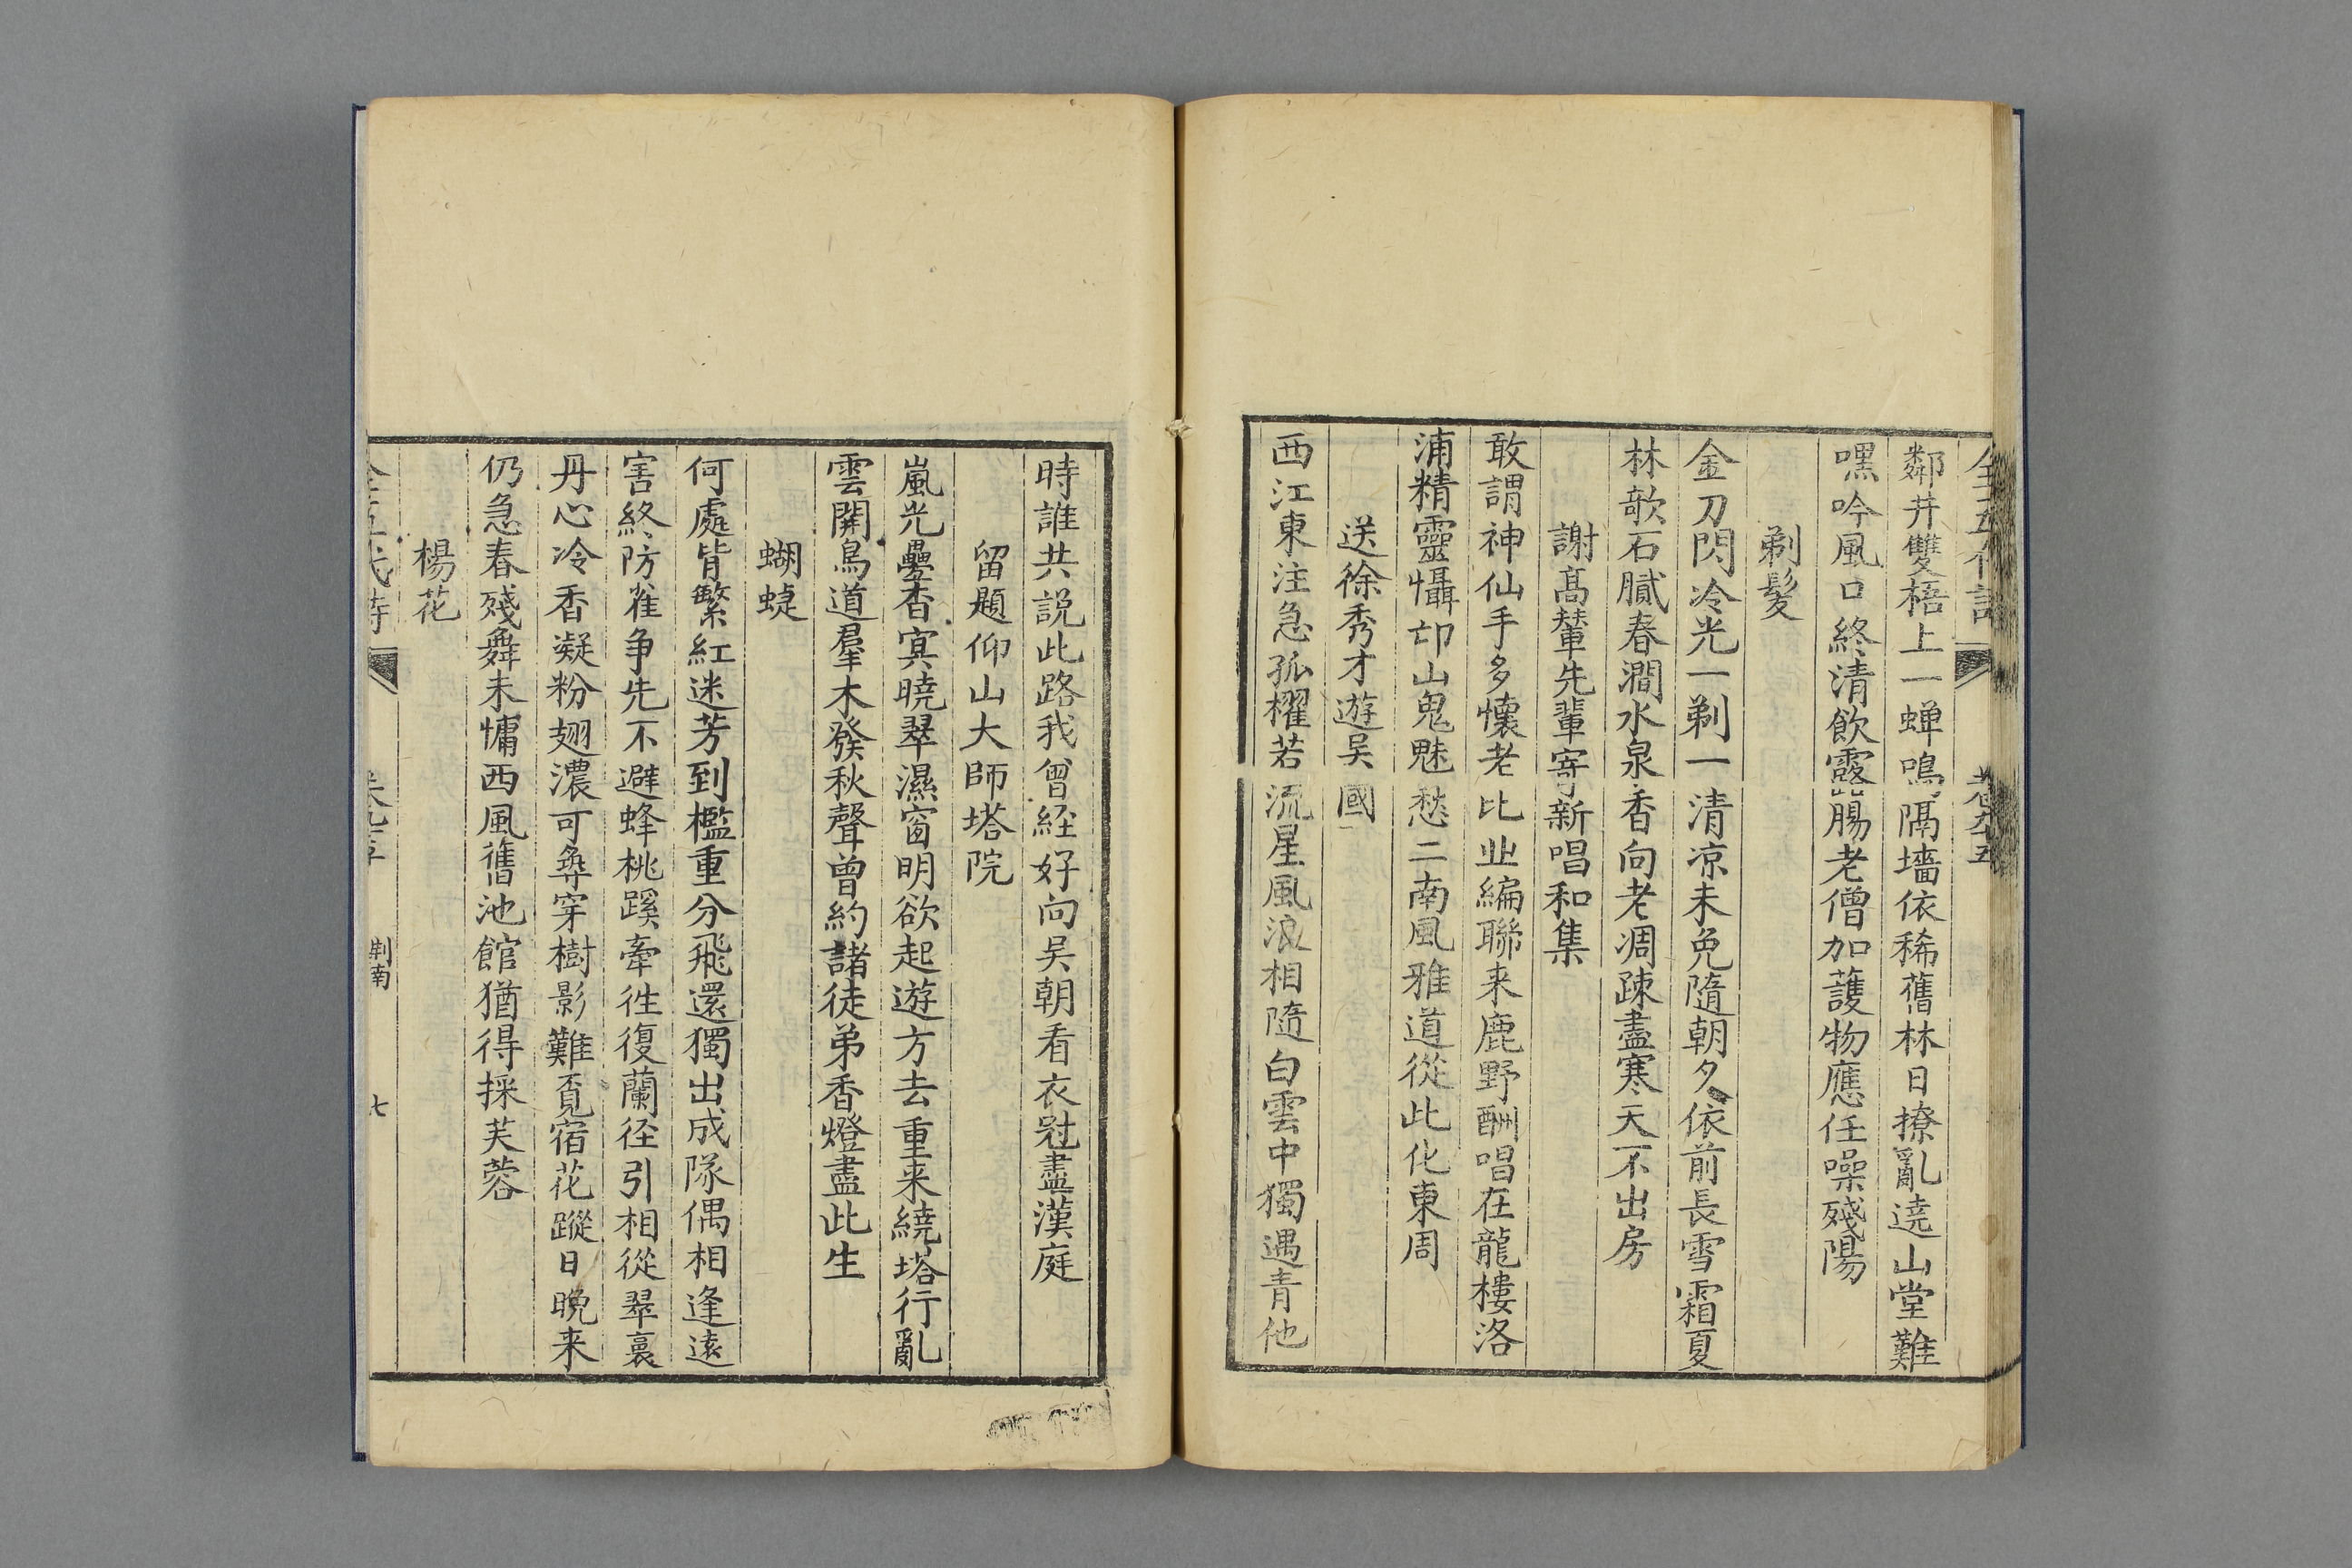 鄰井雙梧上一蝉鳴隔墻依稀舊林日撩亂遶山堂難
嘿吟風口終清飲露腸老僧加護物應任噪殘陽
剃髮
金刀閃冷光一剃一清凉未免隨朝夕依前長雪霜夏
林欹石膩春澗水泉香向老凋疎盡寒天不出房
謝髙輦先輩寄新唱和集
敢謂神仙手多懐老比丘編聯来鹿野酬唱在龍樓洛
浦精靈懾邙山鬼魅愁二南風雅道從此化東周
送徐秀才遊吴國
西江東注急孤櫂若流星風浪相隨白雲中獨遇青他
時誰共説此路我曾経好向吴朝看衣冠盡漢庭
留題仰山大師塔院
嵐光疊杳冥曉翠濕窗明欲起遊方去重来繞塔行亂
雲開鳥道羣木發秋聲曾約諸徒弟香燈盡此生
蝴蜨
何處皆繁紅迷芳到檻重分飛還獨出成隊偶相逢遠
害終防雀争先不避蜂桃蹊牽徃復蘭径引相從翠裛
丹心冷香凝粉翅濃可尋穿樹影難覔宿花蹤日晩来
仍急春殘舞未慵西風舊池館猶得採芙蓉
楊花
荆南
七